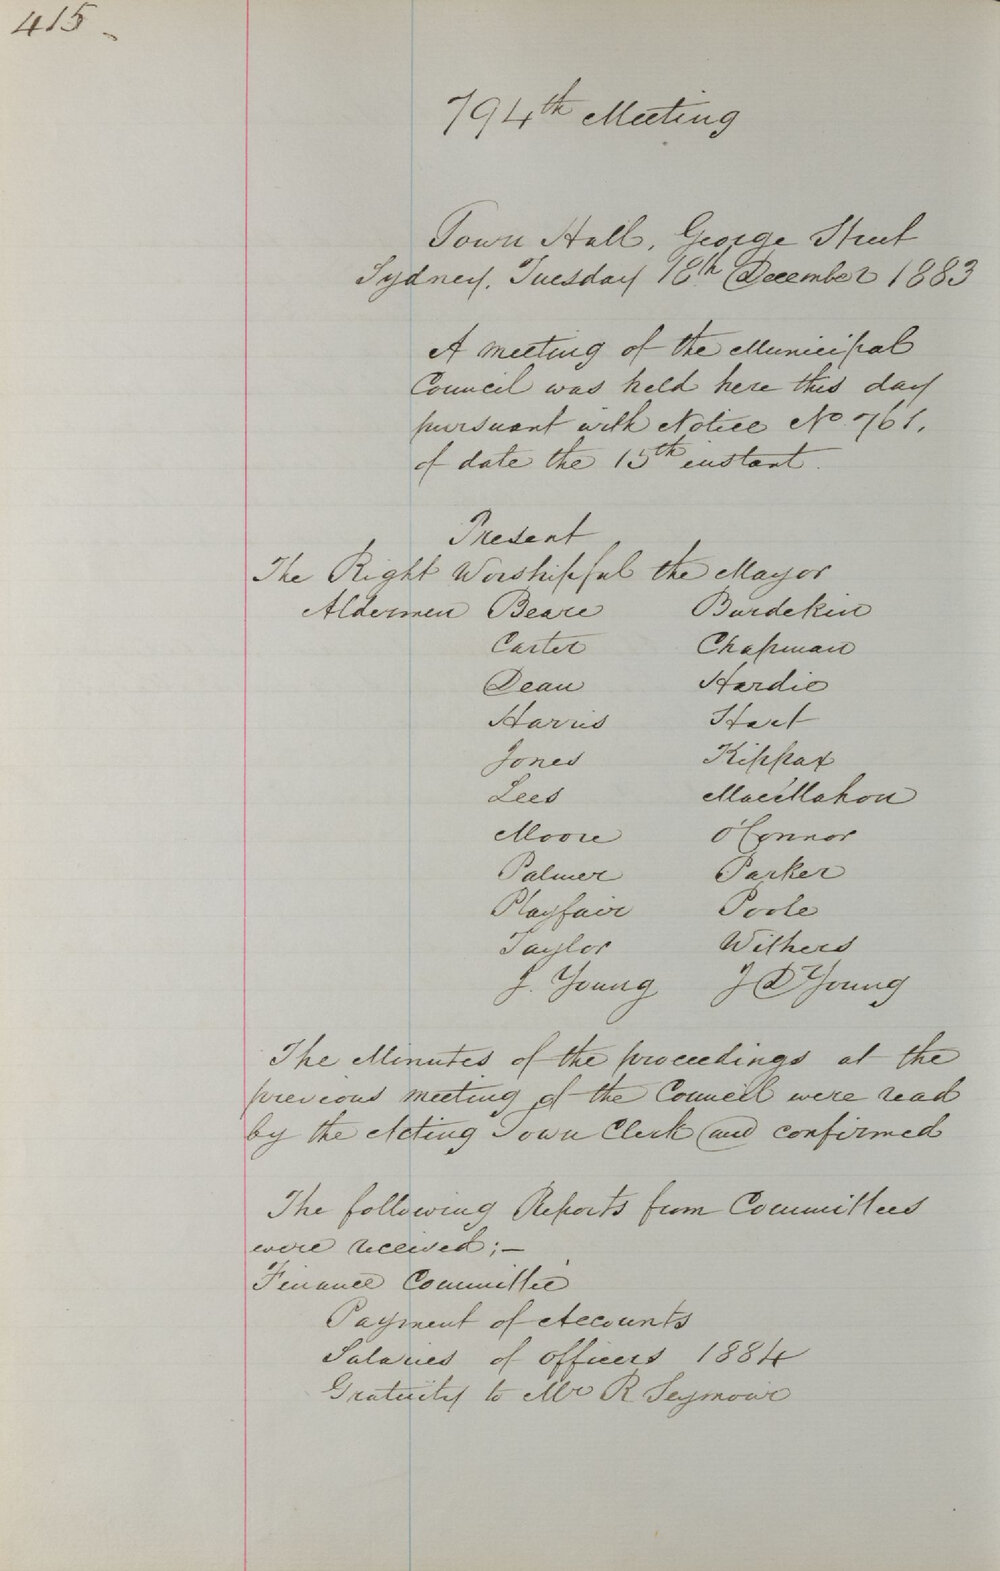 415
794th Meeting
Town Hall, George Street
Sydney, Tuesday 18th December 1883
A meeting of the Municipal
Council was held here this day
pursuant with Notice No 761.
of date the 15th instant.
Present
The Right Worshipful the Mayor
Aldermen Beare Burdekin
Carter Chapman
Dean Hardie
Harris Hart
Jones Kippax
Lees MacMahon
Moore O'Connor
Palmer Parker
Playfair Poole
Taylor Withers
J. Young J D Young
The Minutes of the proceedings at the
previous meeting of the Council were read
by the Acting Town Clerk and confirmed
The following Reports from Committees
were received;—
Finance Committee
Payment of Accounts
Salaries of officers 1884
Gratuity to Mr R Seymour